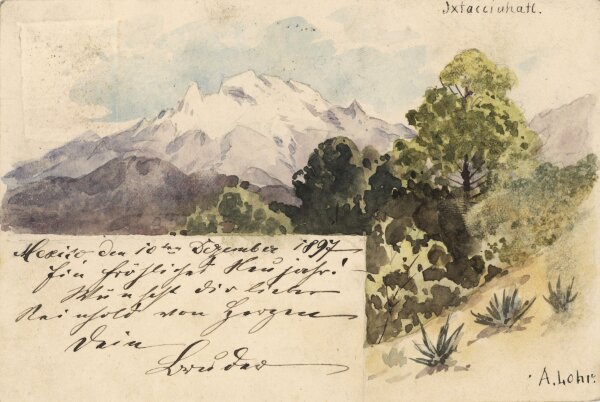 Ixtaccihuatl.
Mexico den 10ten Dezember 1897
Ein fröhliches Neujahr!
Wünscht dir lieber
Reinhold von Herzen
Dein
Bruder
A. Lohr.